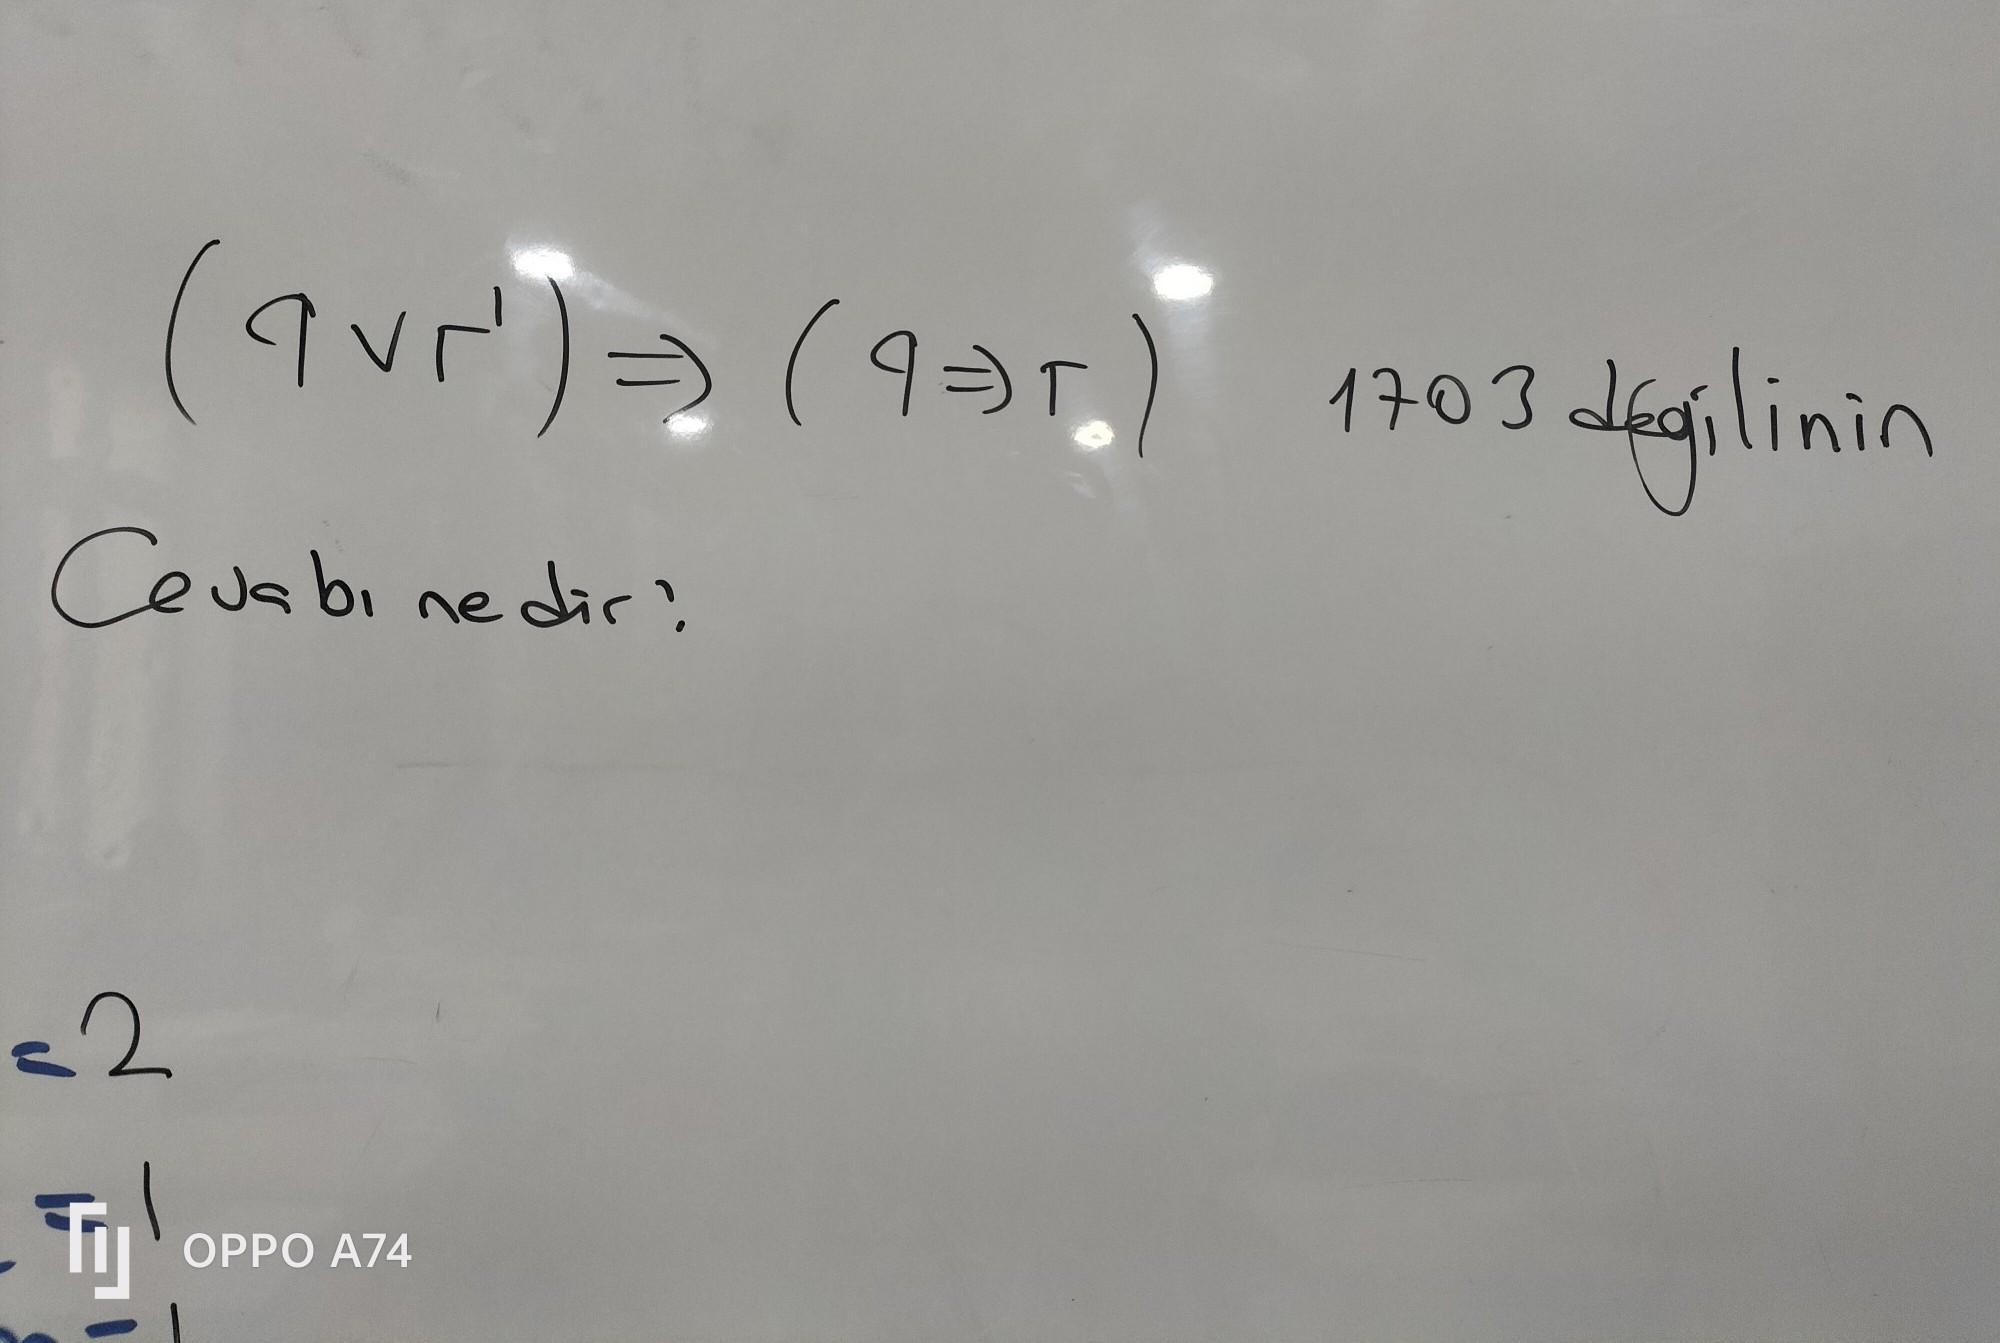 (q ∨ r') ⇒ (q ⇒ r) 1703 değilinin
Cevabı nedir?
= 2
= 1
OPPO A74
= 1